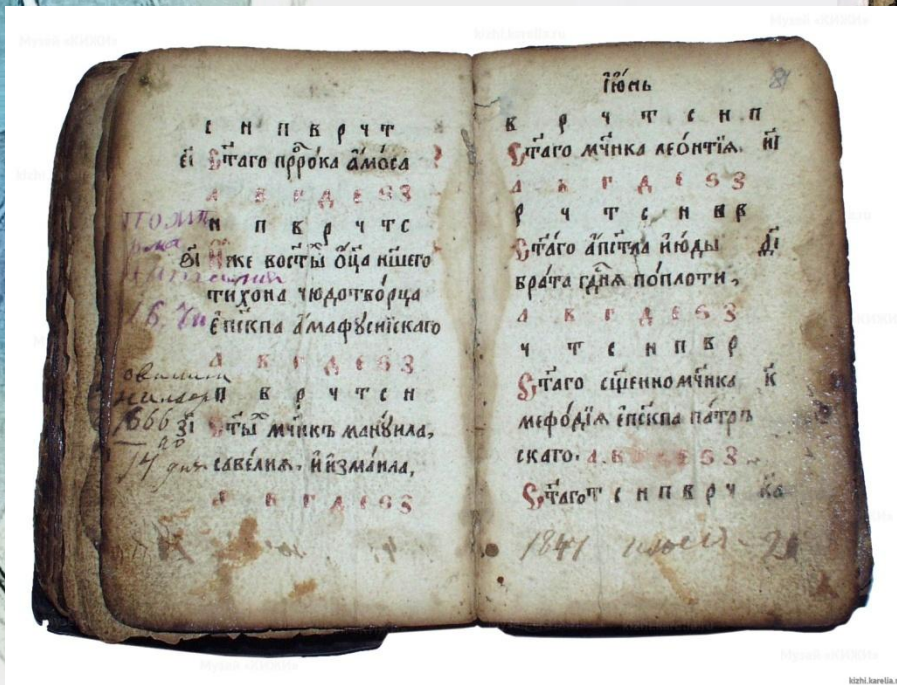 с н п в р ч т
є҃і С҃таго прⷪ҇рока а҆мо́са
а в г д є ѕ з
н п в р ч т с
ѕ҃і И҆́же во ст҃ы́ ѻ҆ц҃а н҃шего
тихона чюдотво́рца
є҆пⷭ҇кпа а҆мафꙋсиі́скаго
а в г д є ѕ з
п в р ч т с н
з҃і С҃ты́ мч҃нкъ манꙋ́ила,
саве́лиѧ, и҆ и҆зма́ила,
а в г д є ѕ з
1666
20
14
І҆ю́нь
81
в р ч т с н п
С҃таго мч҃нка лео́нтїѧ. и҃і
а в г д є ѕ з
р ч т с н п в
С҃таго а҆пⷭ҇тла и҆ю́ды ѳ҃і
бра́та гдⷭ҇нѧ по пло́ти,
а в г д є ѕ з
ч т с н п в р
С҃таго сщ҃енномч҃нка к҃
мефо́дїѧ є҆пⷭ҇кпа па́тръ
скаго. а. в г д є ѕ з.
С҃таго т с н п в р ч к҃а
1841 июня 21
Музей «КИЖИ»
kizhi.karelia.ru